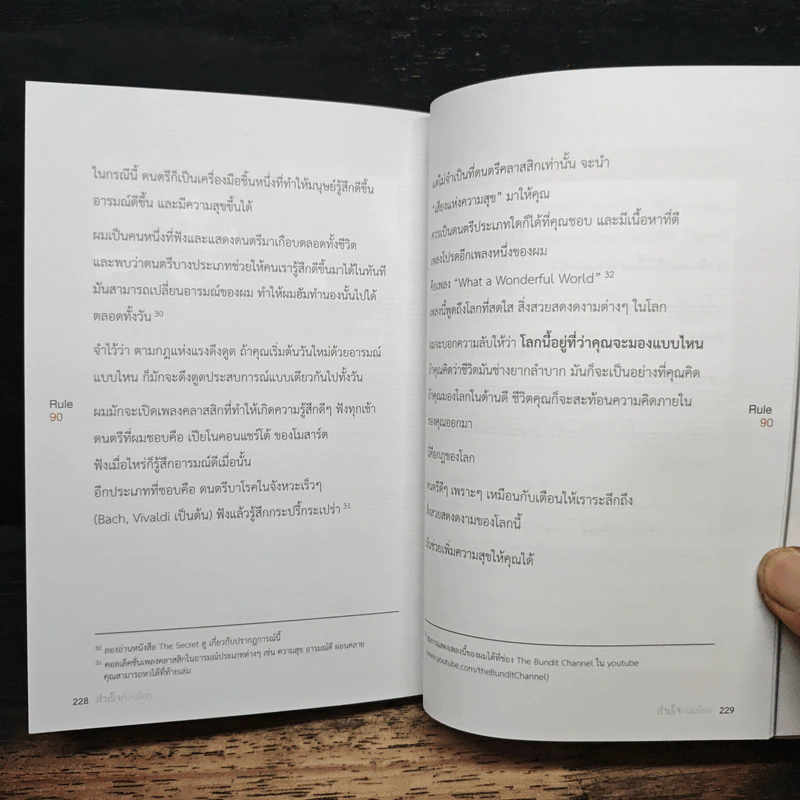 ในกรณีนี้ ดนตรีก็เป็นเครื่องมือชิ้นหนึ่งที่ทำให้มนุษย์รู้สึกดีขึ้น
อารมณ์ดีขึ้น และมีความสุขขึ้นได้
ผมเป็นคนหนึ่งที่ฟังและแสดงดนตรีมาเกือบตลอดทั้งชีวิต
และพบว่าดนตรีบางประเภทช่วยให้คนเรารู้สึกดีขึ้นมาได้ในทันที
มันสามารถเปลี่ยนอารมณ์ของผม ทำให้ผมฮัมทำนองนั้นไปได้
ตลอดทั้งวัน 30
จำไว้ว่า ตามกฎแห่งแรงดึงดูด ถ้าคุณเริ่มต้นวันใหม่ด้วยอารมณ์
แบบไหน ก็มักจะดึงดูดประสบการณ์แบบเดียวกันไปทั้งวัน
Rule
90
ผมมักจะเปิดเพลงคลาสสิกที่ทำให้เกิดความรู้สึกดีๆ ฟังทุกเช้า
ดนตรีที่ผมชอบคือ เปียโนคอนแชร์โต้ ของโมสาร์ต
ฟังเมื่อไหร่ก็รู้สึกอารมณ์ดีเมื่อนั้น
อีกประเภทที่ชอบคือ ดนตรีบาโรคในจังหวะเร็วๆ
(Bach, Vivaldi เป็นต้น) ฟังแล้วรู้สึกกระปรี้กระเปร่า 31
30 ลองอ่านหนังสือ The Secret ดู เกี่ยวกับปรากฏการณ์นี้
31 คอลเล็คชั่นเพลงคลาสสิกในอารมณ์ประเภทต่างๆ เช่น ความสุข อารมณ์ดี ผ่อนคลาย
คุณสามารถหาได้ที่ท้ายเล่ม
228 สำเร็จก่อนใคร
แต่ไม่จำเป็นที่ดนตรีคลาสสิกเท่านั้น จะนำ
"เสียงแห่งความสุข" มาให้คุณ
ควรเป็นดนตรีประเภทใดก็ได้ที่คุณชอบ และมีเนื้อหาที่ดี
เพลงโปรดอีกเพลงหนึ่งของผม
คือเพลง "What a Wonderful World" 32
เพลงนี้พูดถึงโลกที่สดใส สิ่งสวยสดงดงามต่างๆ ในโลก
จะบอกความลับให้ว่า โลกนี้อยู่ที่ว่าคุณจะมองแบบไหน
ถ้าคุณคิดว่าชีวิตมันช่างยากลำบาก มันก็จะเป็นอย่างที่คุณคิด
ถ้าคุณมองโลกในด้านดี ชีวิตคุณก็จะสะท้อนความคิดภายใน
ของคุณออกมา
Rule
90
คือกฎของโลก
ดนตรีดีๆ เพราะๆ เหมือนกับเตือนให้เราระลึกถึง
สิ่งสวยสดงดงามของโลกนี้
ช่วยเพิ่มความสุขให้คุณได้
การแสดงเพลงนี้ของผมได้ที่ช่อง The Bundit Channel ใน youtube
www.youtube.com/theBunditChannel)
สำเร็จก่อนใคร 229